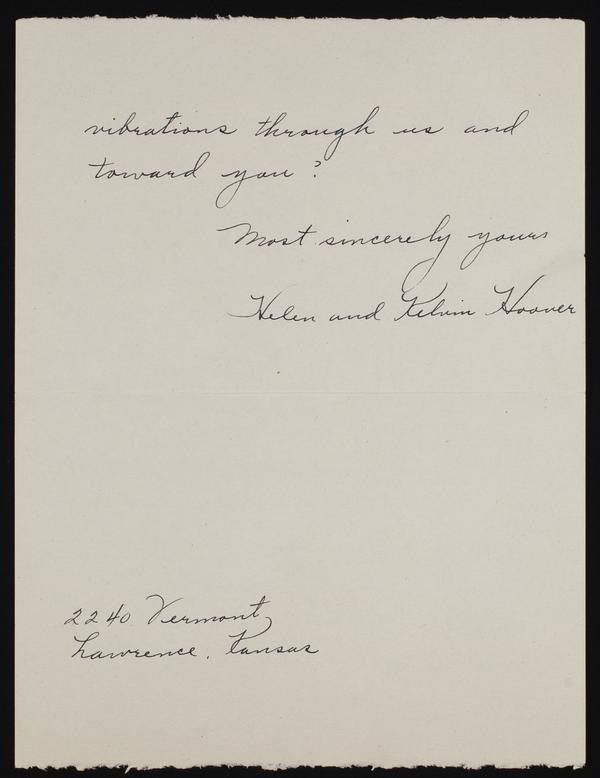 vibrations through us and
toward you?
Most sincerely yours
Helen and Kelvin Hoover
2240 Vermont,
Lawrence, Kansas